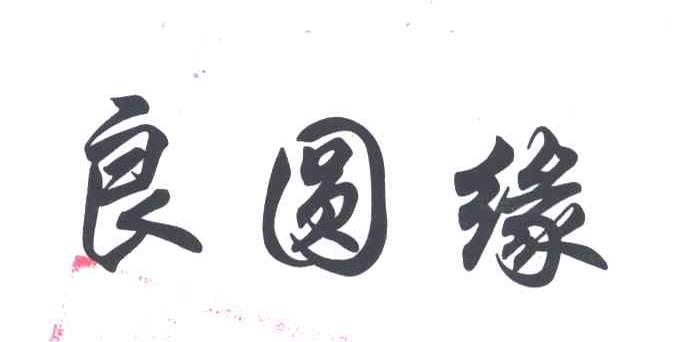 良圆缘